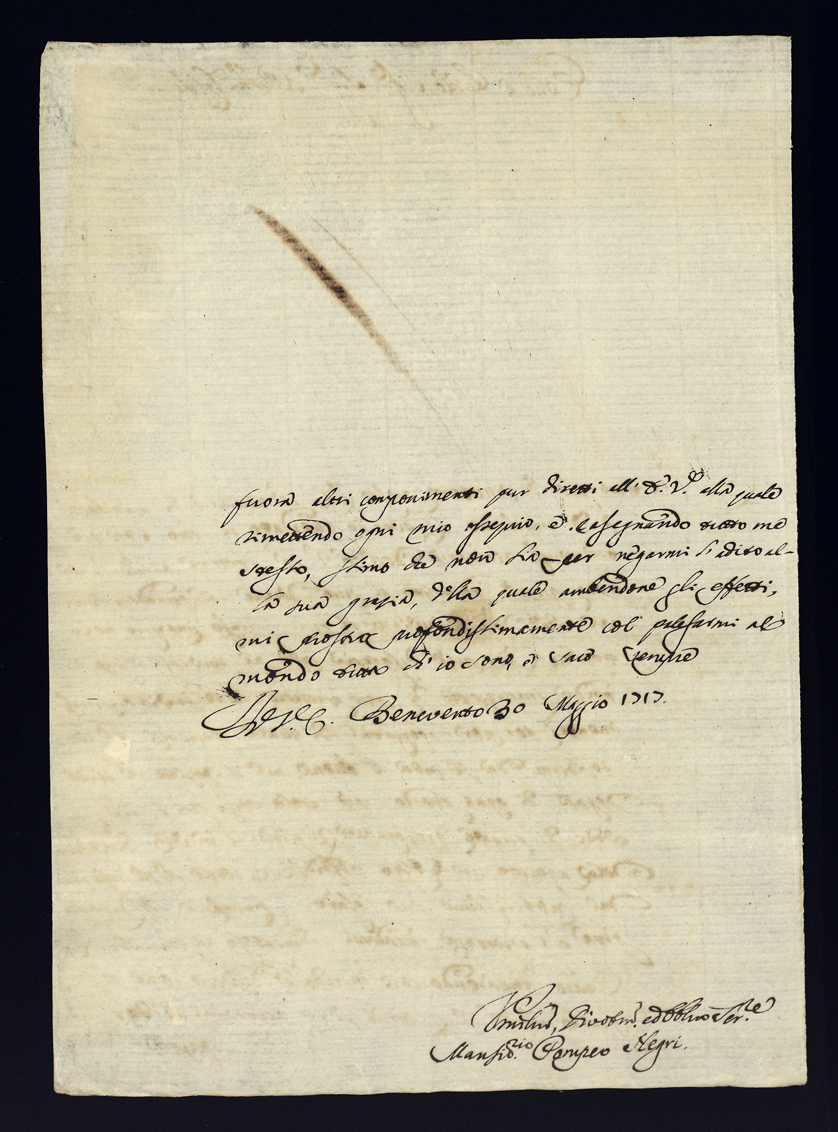 fuora altri componimenti pur diretti all' E. V. alla quale
rimettendo ogni mio ossequio, e rasegnando tutto me
stesso, stimo che non sia per negarmi l'adito al-
la sua grazia, della quale ambendone gli effetti,
mi prostro profondissimamente col palesarmi al
mondo tutto ch' io sono, e sarò sempre
Di V. E. Benevento 30 Maggio 1717.
Umiliss, Divotiss. ed Obbligo Ser.re
Mansio.rio Pompeo Negri.